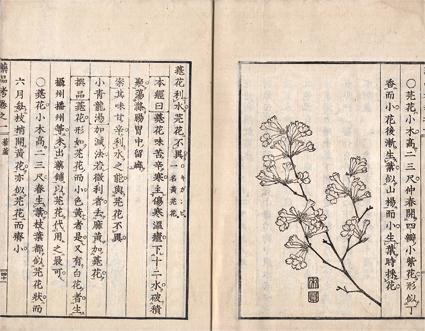 ○芫花小木高二三尺仲春開四瓣小紫花形似丁
香而小花後漸生葉似山楊而小生葉時採花
蕘花利水芫花不異 一名黄芫花
本經曰蕘花味苦辛寒主傷寒溫瘧下十二水破積
聚蕩滌腸胃中留癖
味甘辛利水之能與芫花不異
小青龍湯加減法若微利者去麻黄加蕘花
撰品蕘花形如芫花而小色黄者是又有白花者生
攝州播州等未出藥鋪以芫花代用之最可
○蕘花小木高二三尺春生葉枝葉都似芫花狀而
六月每枝梢開黄花亦似芫花而瘠小
藥品考卷之一